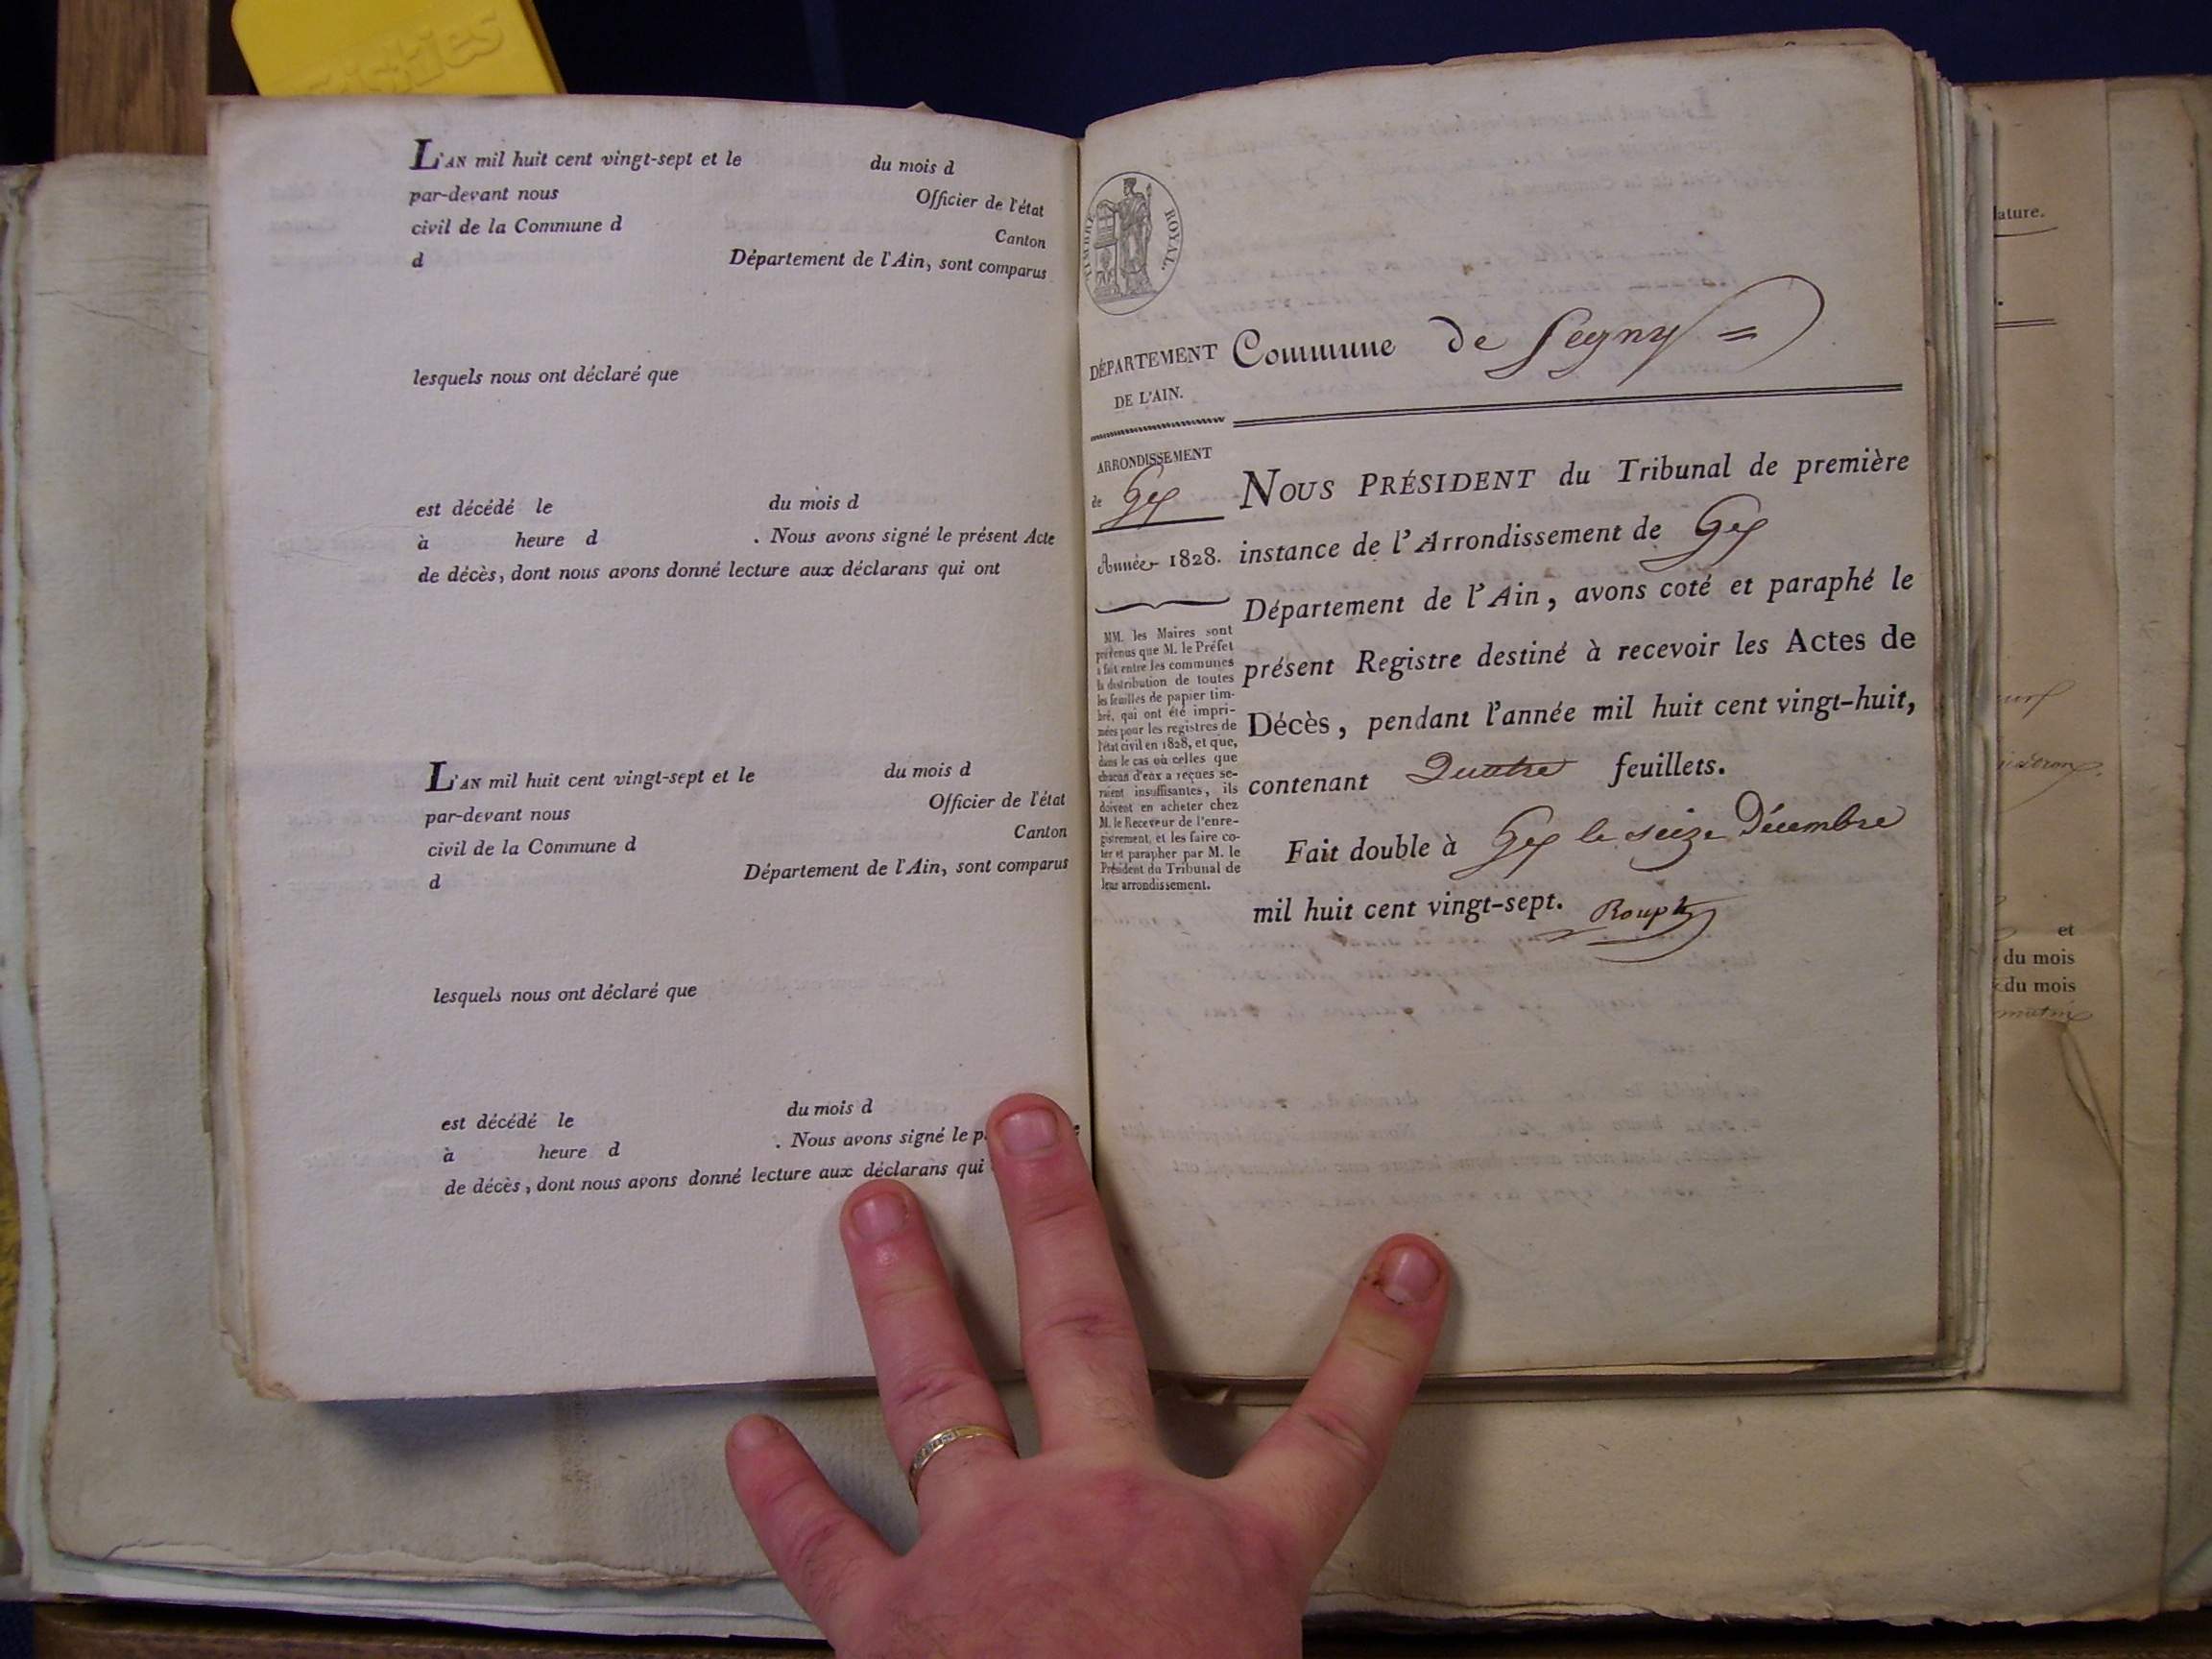 Friskies
L'AN mil huit cent vingt-sept et le du mois d
par-devant nous Officier de l'état
civil de la Commune d Canton
d Département de l'Ain, sont comparus
lesquels nous ont déclaré que
est décédé le du mois d
à heure d . Nous avons signé le présent Acte
de décès, dont nous avons donné lecture aux déclarans qui ont
L'AN mil huit cent vingt-sept et le du mois d
par-devant nous Officier de l'état
civil de la Commune d Canton
d Département de l'Ain, sont comparus
lesquels nous ont déclaré que
est décédé le du mois d
à heure d . Nous avons signé le
de décès, dont nous avons donné lecture aux déclarans qui
TIMBRE ROYAL.
DÉPARTEMENT
DE L'AIN.
Commune de Segny =
ARRONDISSEMENT
de Gex
Année 1828.
MM. les Maires sont
prévenus que M. le Préfet
a fait entre les communes
la distribution de toutes
les feuilles de papier tim-
bré, qui ont été impri-
mées pour les registres de
l'état civil en 1828, et que,
dans le cas où celles que
chacun d'eux a reçues se-
raient insuffisantes, ils
doivent en acheter chez
M. le Receveur de l'enre-
gistrement, et les faire co-
ter et parapher par M. le
Président du Tribunal de
leur arrondissement.
NOUS PRÉSIDENT du Tribunal de première
instance de l'Arrondissement de Gex
Département de l'Ain, avons coté et paraphé le
présent Registre destiné à recevoir les Actes de
Décès, pendant l'année mil huit cent vingt-huit,
contenant Quatre feuillets.
Fait double à Gex le seize Décembre
mil huit cent vingt-sept.
et
du mois
du mois
matin